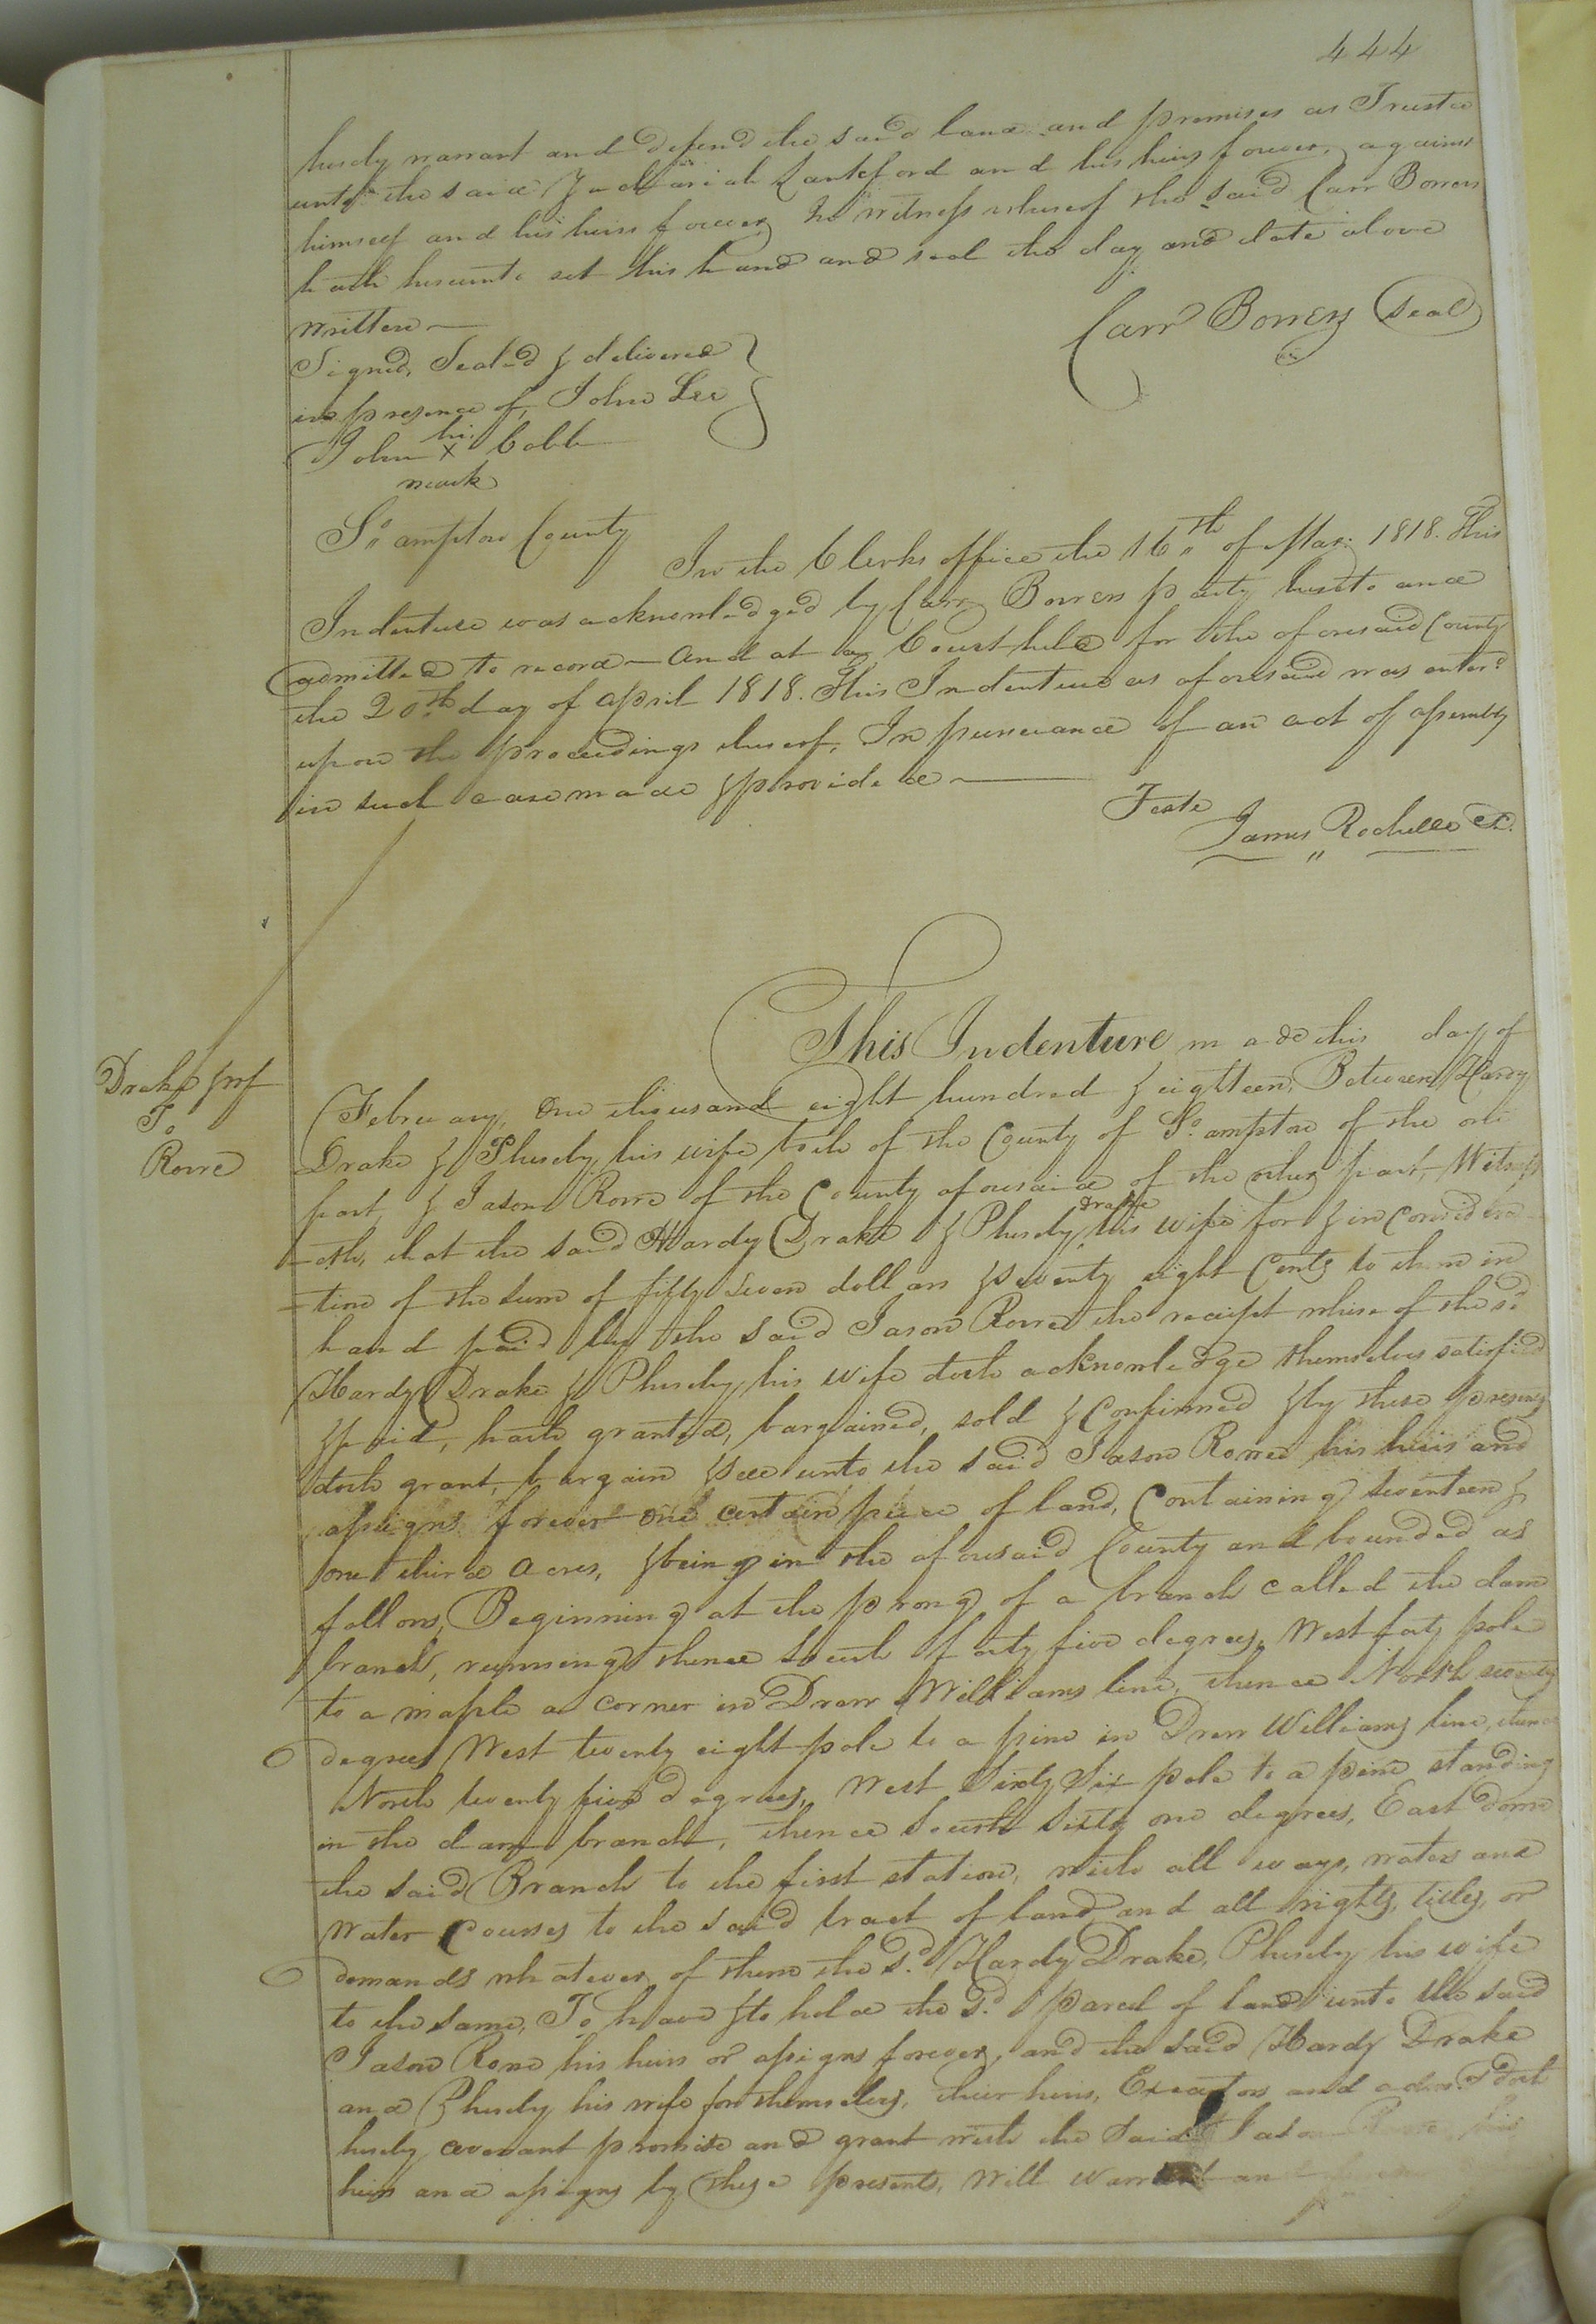 444
hereby warrant and defend the said land and premises as Trustee
unto the said Zachariah Lankford and his heirs forever, against
himself and his heirs forever, In witness whereof the said Carr Bowers
hath hereunto set his hand and seal the day and date above
written —
Carr Bowers (Seal)
Signed, Sealed & delivered
in presence of, John Lee
his
John X Cobb
mark
So. ampton County
In the Clerks office the 16th of Mar: 1818. This
Indenture was acknowledged by Carr Bowers party hereto and
admitted to record — and at a Court held for the aforesaid County
the 20th day of april 1818. This Indenture as aforesaid was enterd
upon the proceedings thereof, In pursuance of an act of assembly
in such case made & provided —
Teste
James Rochelle Ck.
This Indenture made this day of
Drake & wf
To
Rowe
February, One thousand eight hundred & eighteen, Between Hardy
Drake & Phereby his wife both of the County of So. ampton of the one
part, & Jason Rowe of the County aforesaid of the other part, Witness
-eth, that the said Hardy Drake & Phereby Drake his wife for & in considera-
-tion of the sum of fifty seven dollars & seventy eight Cents to them in
hand paid by the said Jason Rowe the receipt whereof the sd.
Hardy Drake & Phereby his wife doth acknowledge themselves satisfied
& paid, hath granted, bargained, sold & Confirmed & by these presents
doth grant, bargain & sell unto the said Jason Rowe his heirs and
assigns forever one certain piece of land, Containing seventeen &
one third acres, & being in the aforesaid County and bounded as
follows, Beginning at the prong of a branch called the dam
branch, running thence South forty five degrees, West forty pole
to a maple a corner in Drew Williams line, thence North seventy
degrees West twenty eight pole to a pine in Drew Williams line, thence
North twenty five degrees, West Sixty Six pole to a pine standing
in the dam branch, thence South sixty one degrees, East down
the said Branch to the first station, with all ways, water and
Water Courses to the said tract of land and all rights, titles, or
demands whatever of them the sd. Hardy Drake, Phereby his wife
to the same, To have & to hold the sd. parcel of land unto the said
Jason Rowe his heirs or assigns forever, and the said Hardy Drake
and Phereby his wife for themselves, their heirs, Executors and admrs. doth
hereby covenant promise and grant with the said Jason Rowe his
heirs and assigns by these presents, will warrant and